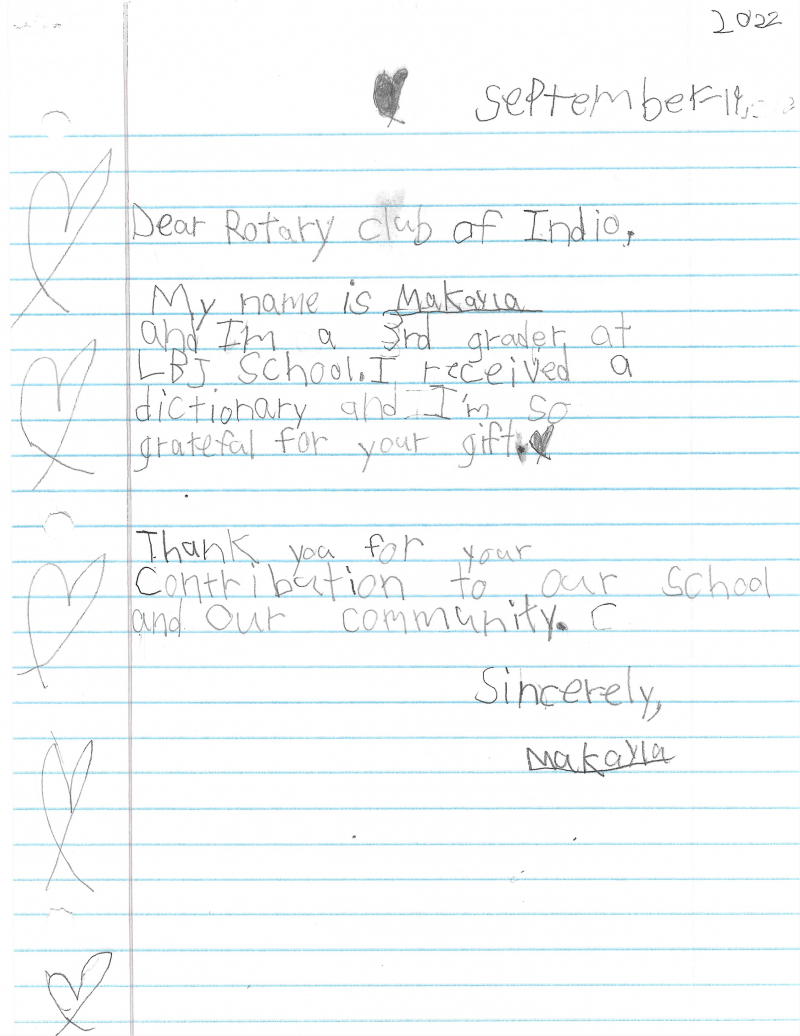 2022
September 19,
Dear Rotary club of Indio,
My name is Makayla
and I'm a 3rd grader at
LBJ School. I received a
dictionary and I'm so
grateful for your gift.
Thank you for your
Contribation to our School
and Our community. C
Sincerely,
Makayla